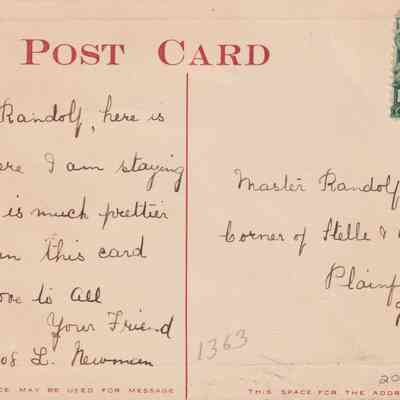 POST CARD
Randolf, here is
ere I am staying
is much prettier
an this card
ove to all
Your Friend
os L. Newman
Master Randolf
Corner of Stelle &
Plainf
1363
20
CE MAY BE USED FOR MESSAGE
THIS SPACE FOR THE ADDR